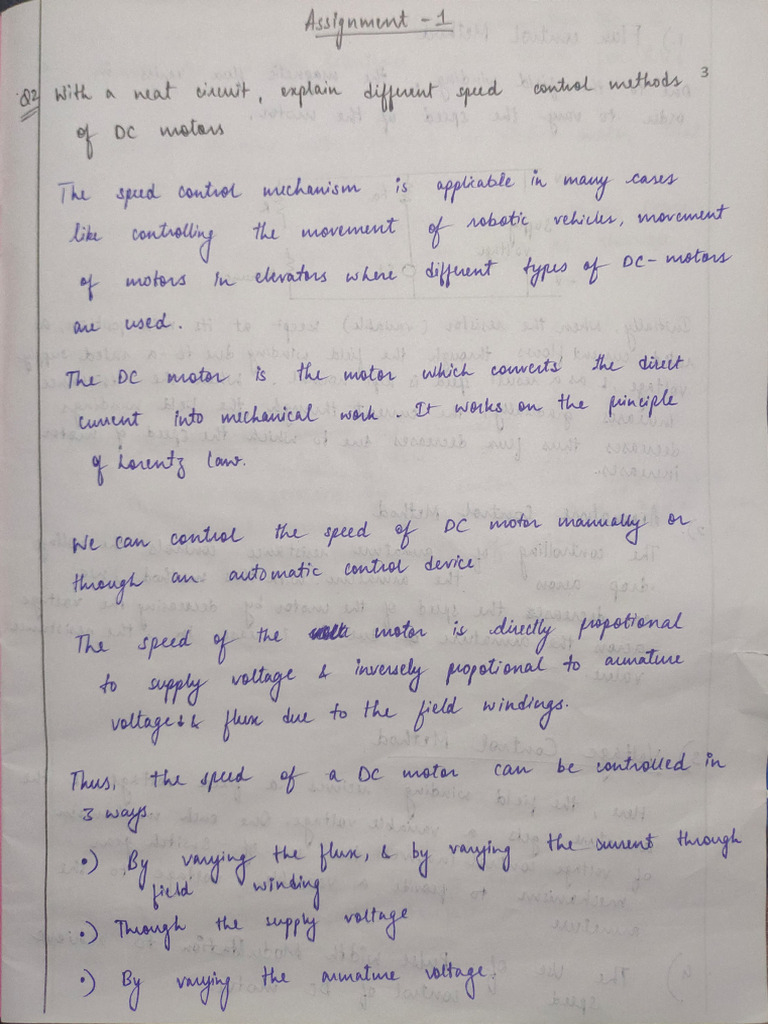 Assignment - 1
3
Q2 With a neat circuit, explain different speed control methods
of DC motors
The speed control mechanism is applicable in many cases
like controlling the movement of robotic vehicles, movement
of motors in elevators where different types of DC-motors
are used.
The DC motor is the motor which converts the direct
current into mechanical work. It works on the principle
of Lorentz law.
We can control the speed of DC motor manually or
through an automatic control device.
The speed of the motor is directly propotional
to supply voltage & inversely propotional to armature
voltage & flux due to the field windings.
Thus, the speed of a DC motor can be controlled in
3 ways.
•) By varying the flux, & by varying the current through
field winding
•) Through the supply voltage
•) By varying the armature voltage.